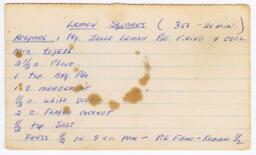 LEMON SQUARES ( 350 - 20 min.)
PREPARE 1 PKG. JELLO LEMON PIE FILLING & COOL
MIX TOGETHER
2 1/2 C. FLOUR
1 tsp. BKG PDR.
1 C. MARGARINE
1/2 C. WHITE SUGAR
2 C. FLAKED COCONUT
1/2 tsp SALT
PRESS 1/2 IN 9x10 PAN - PIE FILLING -